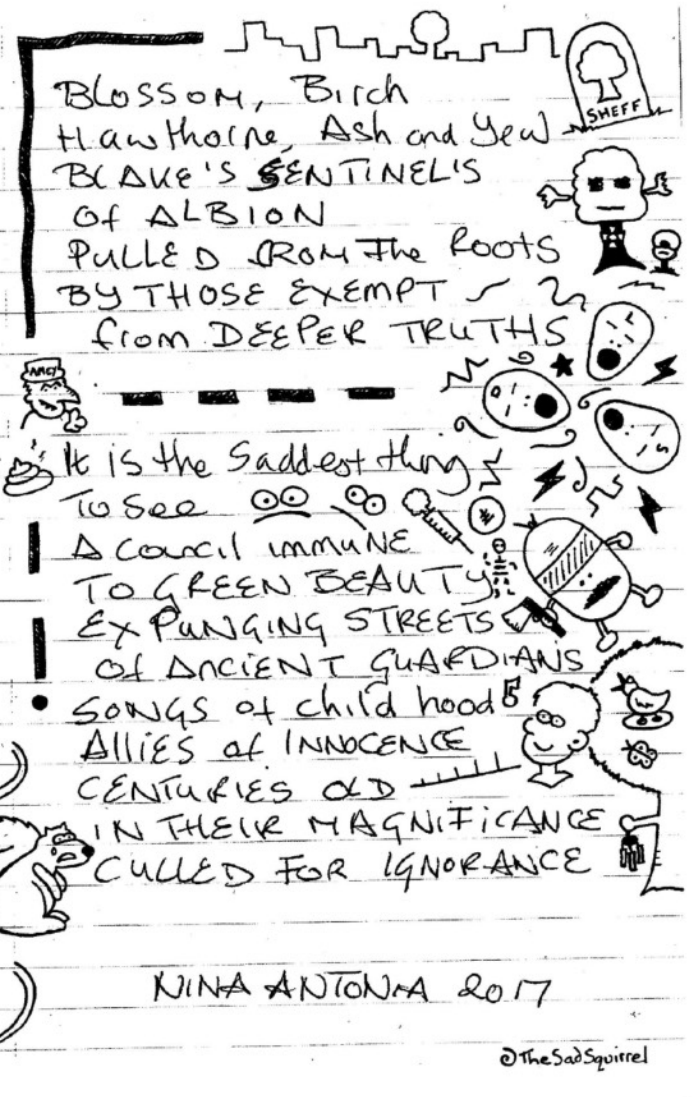 SHEFF
BLOSSOM, Birch
Hawthorne, Ash and Yew
BLAKE'S SENTINEL'S
Of ALBION
PULLED FROM The Roots
BY THOSE EXEMPT
from DEEPER TRUTHS
AMCY
It is the Saddest thing
To See
A Council immune
TO GREEN BEAUTY
EXPUNGING STREETS
Of ANCIENT GUARDIANS
SONGS of child hood
Allies of INNOCENCE
CENTURIES OLD
IN THEIR MAGNIFICANCE
CULLED FOR IGNORANCE
NINA ANTONIA 2017
©TheSadSquirrel